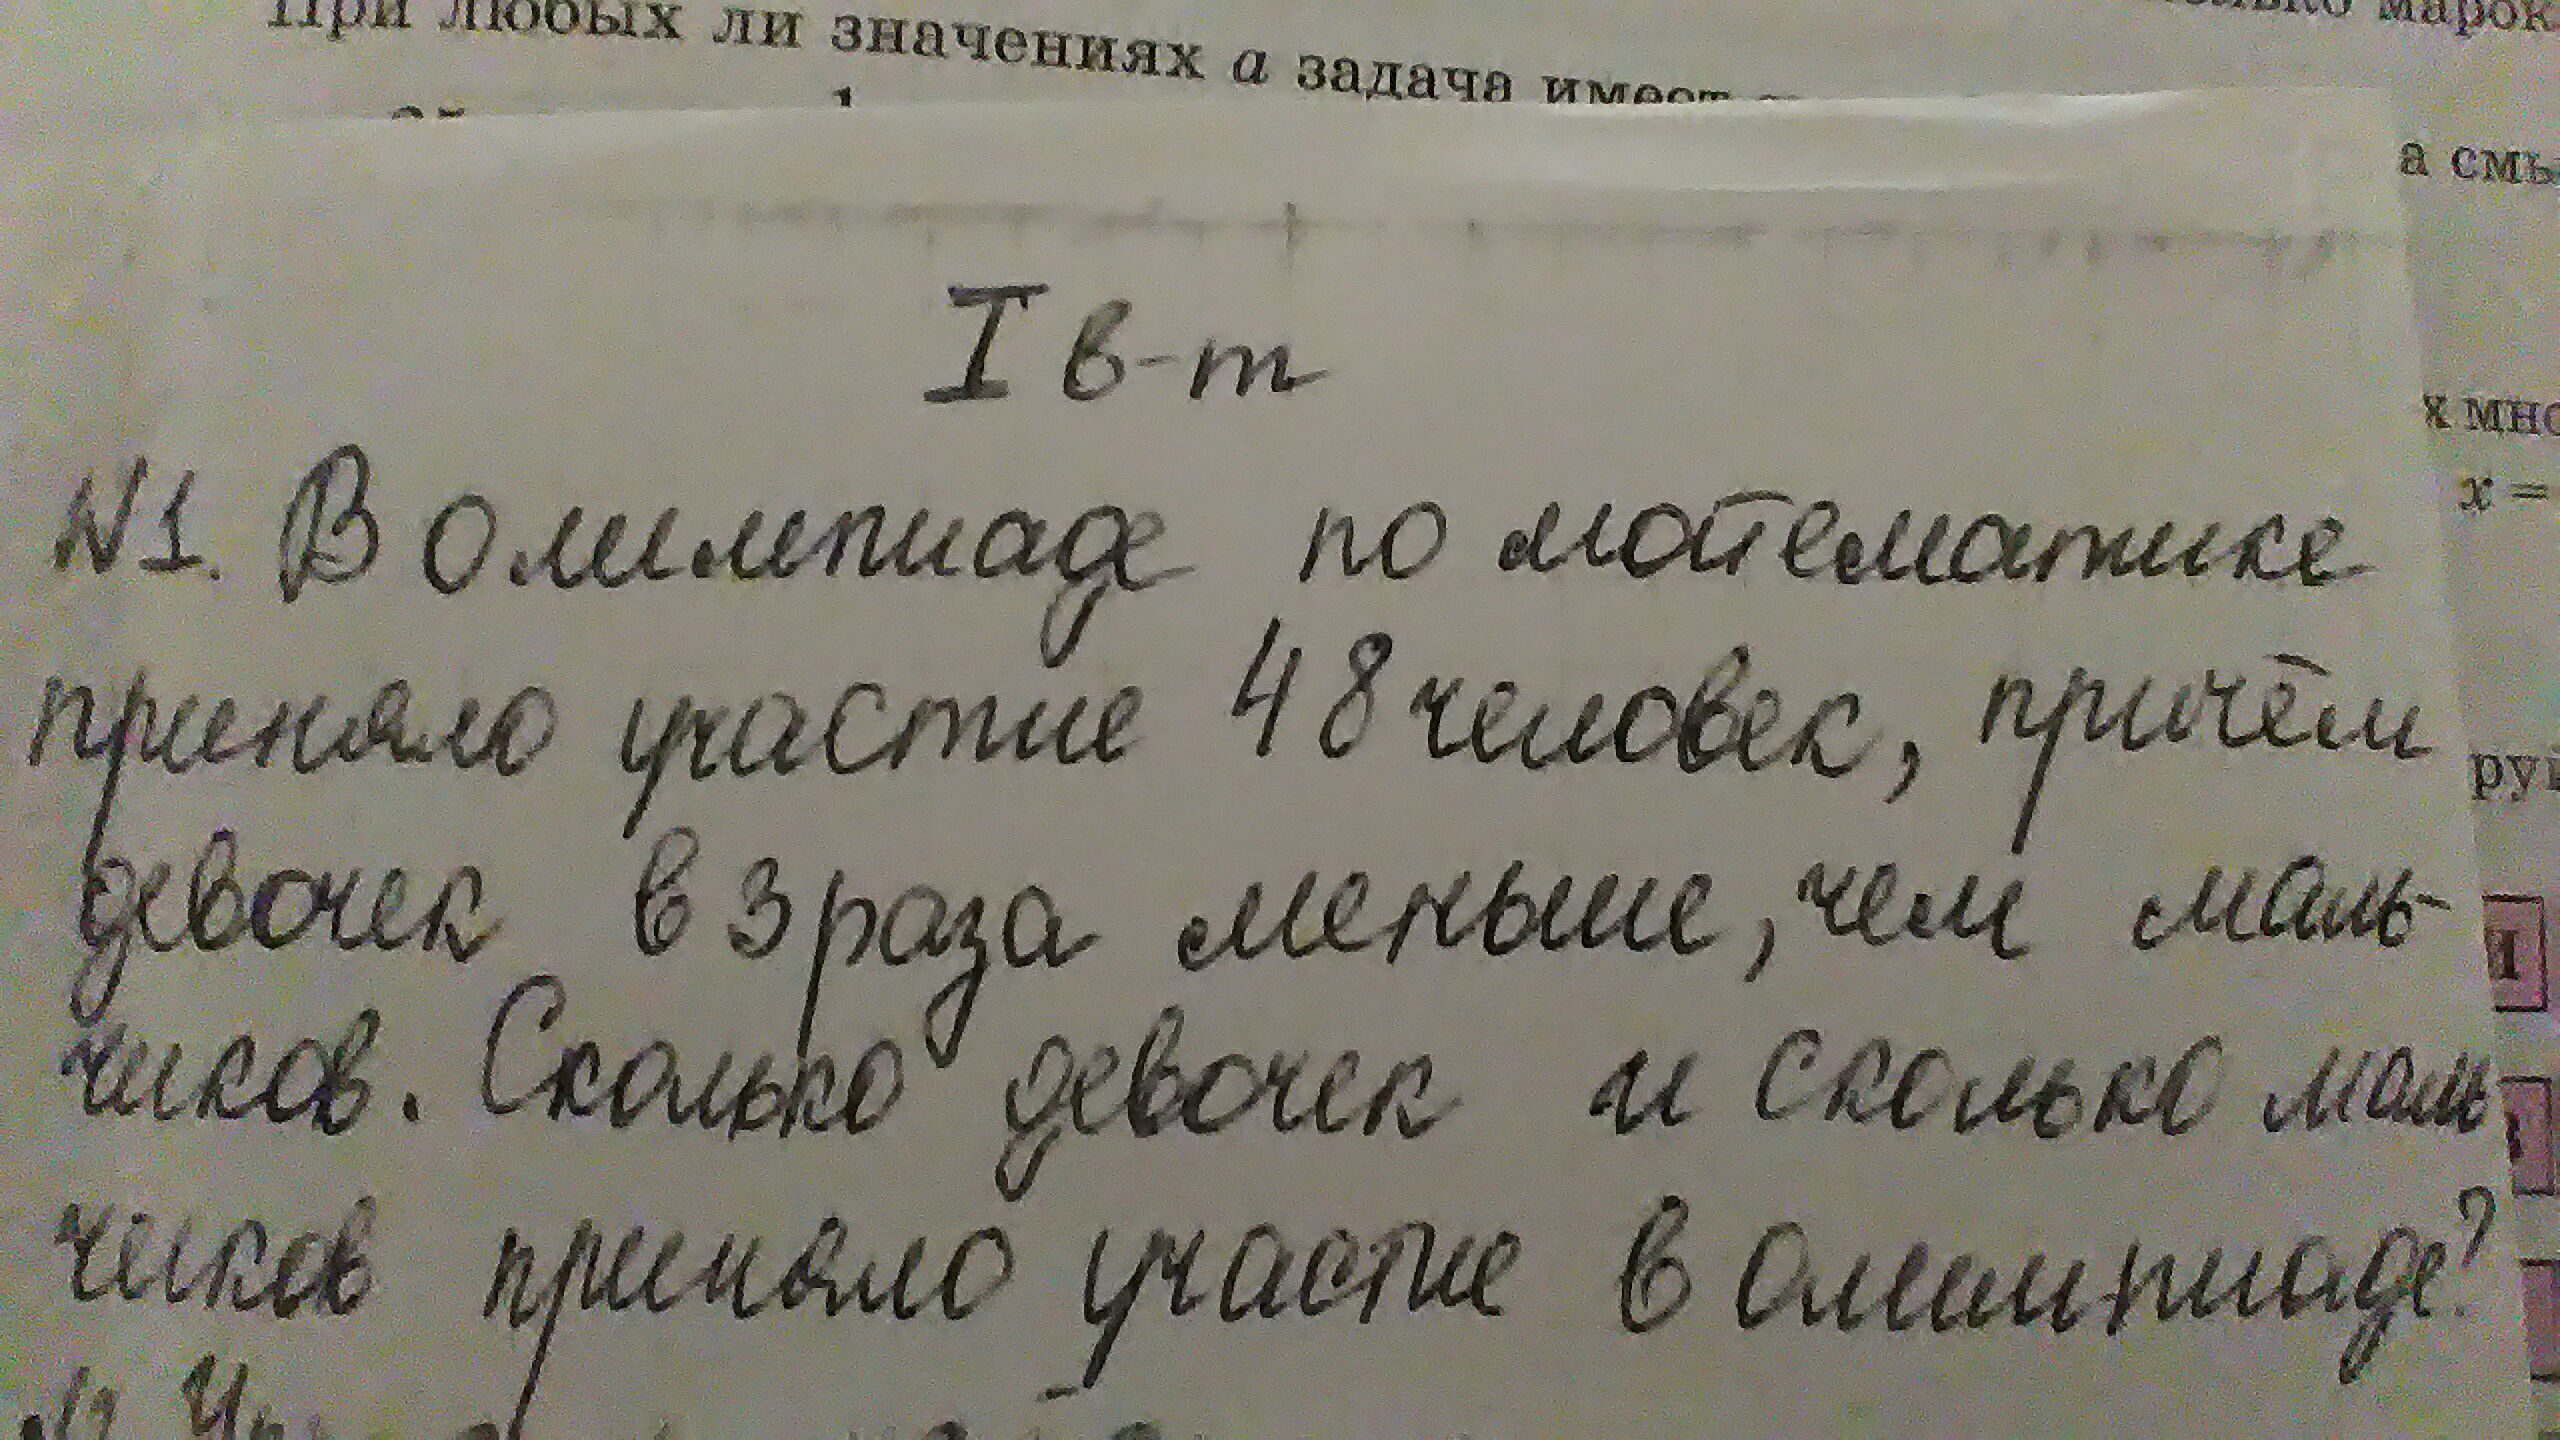 При любых ли значениях а задача имеет
марок
а смы
I в-т
х мно
N1. В олимпиаде по математике
х =
приняло участие 48 человек, причём
девочек в 3 раза меньше, чем маль-
чиков. Сколько девочек и сколько маль
чиков приняло участие в олимпиаде?